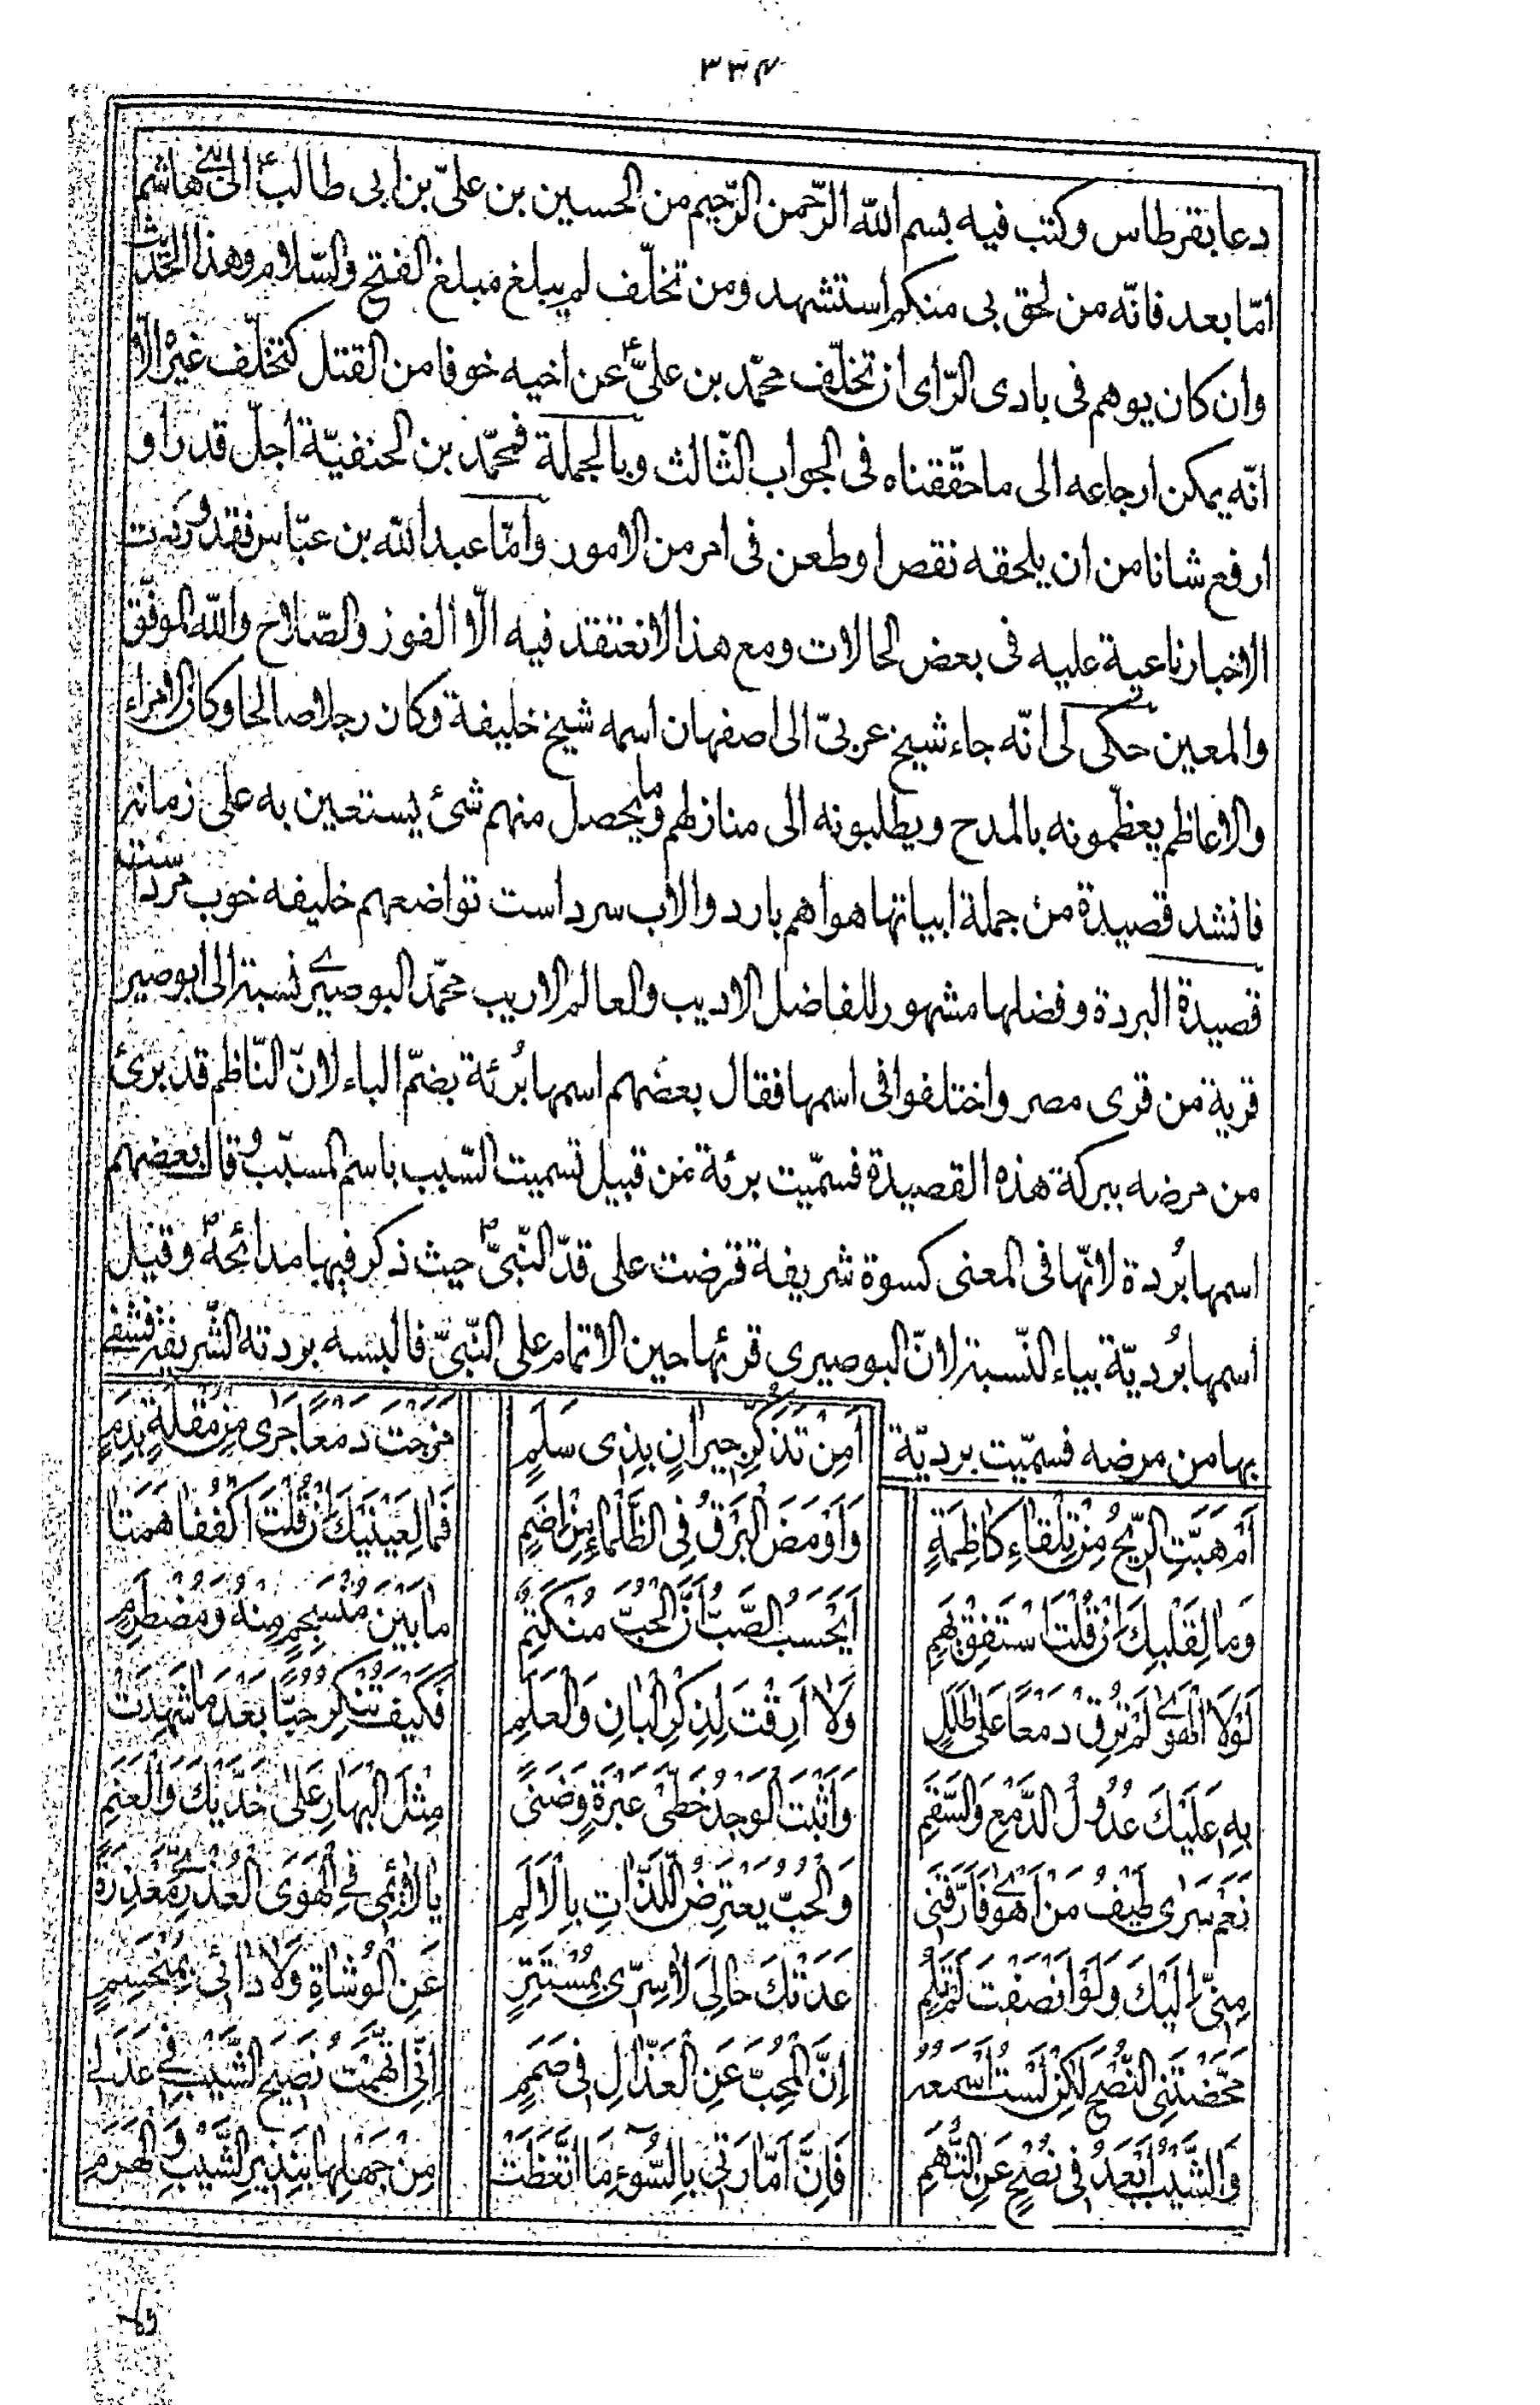 ٣٣٤
دعا بقرطاس وكتب فيه بسم الله الرّحمن الرّحيم من الحسين بن علىّ بن ابى طالب ع الى بنى هاشم
امّا بعد فانّه من لحق بى منكم استشهد ومن تخلّف لم يبلغ مبلغ الفتح والسّلام وهذا الحديث
وان كان يوهم فى بادى الرّاى ان تخلّف محمّد بن علىّ ع عن اخيه خوفا من القتل كتخلّف غيره الّا
انّه يمكن ارجاعه الى ما حقّقناه فى الجواب الثّالث وبالجملة فمحمّد بن الحنفيّة اجلّ قدرا و
ارفع شانا من ان يلحقه نقص او طعن فى امر من الامور وامّا عبد الله بن عبّاس فقد وردت
الاخبار ناعية عليه فى بعض الحالات ومع هذا لا نعتقد فيه الّا الفوز والصّلاح والله الموفّق
والمعين حكى لى انّه جاء شيخ عربىّ الى اصفهان اسمه شيخ خليفة وكان رجلا صالحا وكان الامراء
والاعاظم يعظّمونه بالمدح ويطلبونه الى منازلهم وما يحصل منهم شئ يستعين به على زمانه
فانشد قصيدة من جملة ابياتها هواهم بارد والاب سرد است تواضعهم خليفه خوب مرد است
قصيدة البردة وفضلها مشهور للفاضل الاديب والعالم الاريب محمّد البوصيرى نسبة الى ابوصير
قرية من قرى مصر واختلفوا فى اسمها فقال بعضهم اسمها بُرئة بضمّ الباء لانّ النّاظم قد برئ
من مرضه ببركة هذه القصيدة فسمّيت برئة من قبيل تسميت السّبب باسم المسبّب وقال بعضهم
اسمها بُردة لانّها فى المعنى كسوة شريفة قرضت على قدّ النّبىّ ص حيث ذكر فيها مدائحه ص وقيل
اسمها بُرديّة بياء النّسبة لانّ البوصيرى قرئها حين الاتمام على النّبىّ فالبسه بردته الشّريفة فشفى
بها من مرضه فسمّيت برديّة
اَمِنْ تَذَكُّرِ جيرانٍ بِذِى سَلَمٍ
مَزَجْتَ دَمْعًا جَرى مِنْ مُقْلَةٍ بِدَمٍ
اَمْ هَبَّتِ الرّيحُ مِنْ تِلْقاءِ كاظِمَةٍ
وَاَوْمَضَ الْبَرْقُ فِى الظَّلْماءِ مِنْ اِضَمٍ
فَما لِعَيْنَيْكَ اِنْ قُلْتَ اكْفُفا هَمَتا
وَما لِقَلْبِكَ اِنْ قُلْتَ اسْتَفِقْ يَهِمِ
اَيَحْسَبُ الصَّبُّ اَنَّ الْحُبَّ مُنْكَتِمٌ
ما بَيْنَ مُنْسَجِمٍ مِنْهُ وَمُضْطَرِمٍ
لَوْلَا الْهَوى لَمْ تُرِقْ دَمْعًا عَلى طَلَلٍ
وَلا اَرِقْتَ لِذِكْرِ الْبانِ وَالْعَلَمِ
فَكَيْفَ تُنْكِرُ حُبًّا بَعْدَ ما شَهِدَتْ
بِهِ عَلَيْكَ عُدُولُ الدَّمْعِ وَالسَّقَمِ
وَاَثْبَتَ الْوَجْدُ خَطَّىْ عَبْرَةٍ وَضَنًى
مِثْلَ الْبَهارِ عَلى خَدَّيْكَ وَالْعَنَمِ
نَعَمْ سَرى طَيْفُ مَنْ اَهْوى فَاَرَّقَنى
وَالْحُبُّ يَعْتَرِضُ اللَّذّاتِ بِالْاَلَمِ
يا لائِمى فِى الْهَوَى الْعُذْرِىِّ مَعْذِرَةً
مِنّى اِلَيْكَ وَلَوْ اَنْصَفْتَ لَمْ تَلُمِ
عَدَتْكَ حالِىَ لا سِرّى بِمُسْتَتِرٍ
عَنِ الْوُشاةِ وَلا دائى بِمُنْحَسِمٍ
مَحَّضْتَنِى النُّصْحَ لكِنْ لَسْتُ اَسْمَعُهُ
اِنَّ الْمُحِبَّ عَنِ الْعَذّالِ فى صَمَمٍ
اِنّى اتَّهَمْتُ نَصيحَ الشَّيْبِ فى عَذَلى
وَالشَّيْبُ اَبْعَدُ فى نُصْحٍ عَنِ التُّهَمِ
فَاِنَّ اَمّارَتى بِالسُّوءِ مَا اتَّعَظَتْ
مِنْ جَهْلِها بِنَذيرِ الشَّيْبِ وَالْهَرَمِ